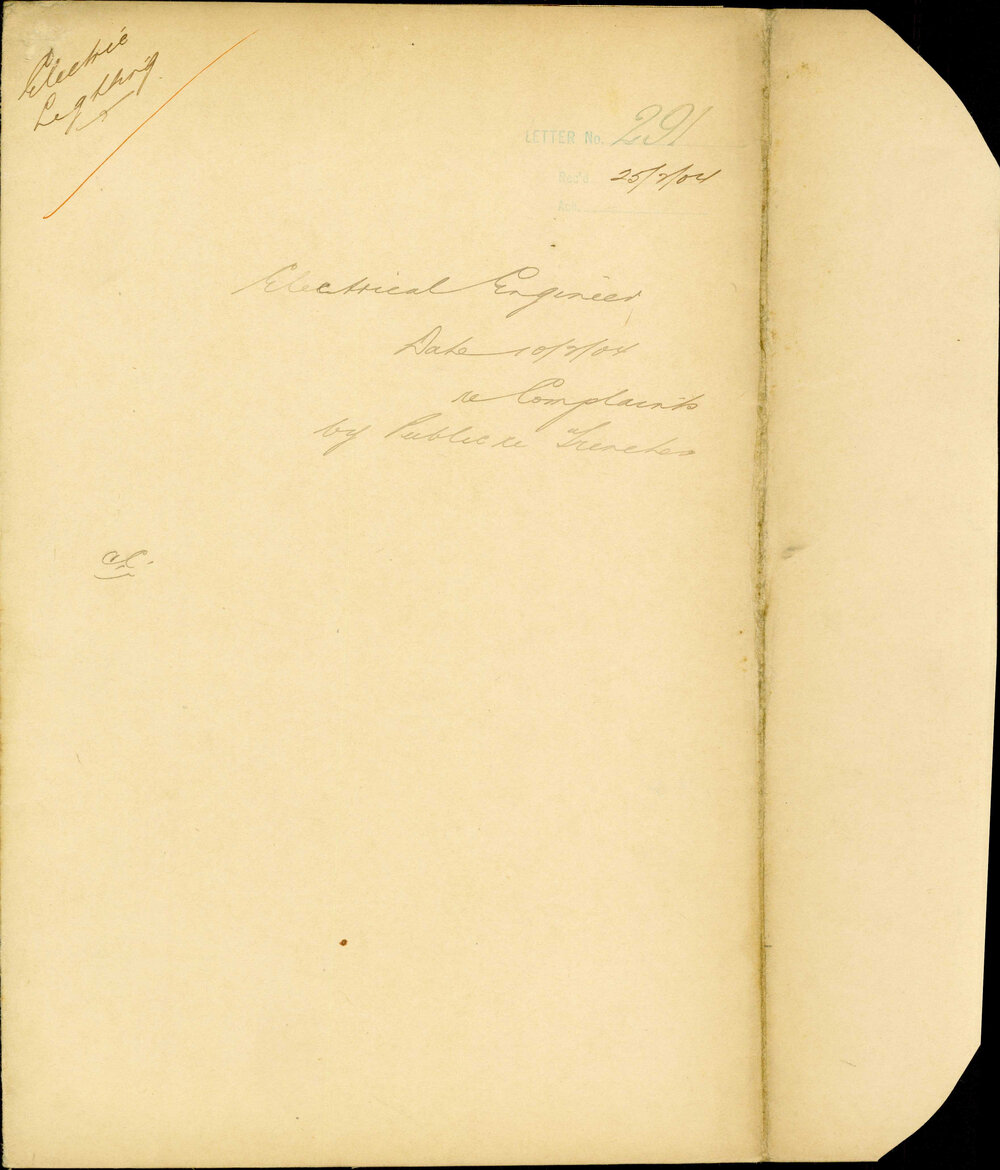 Electric
Lighting
LETTER No. 291
Rec'd 25/2/04
Ack.
Electrical Engineer
Date 10/2/04
re Complaints
by Public re Trenches